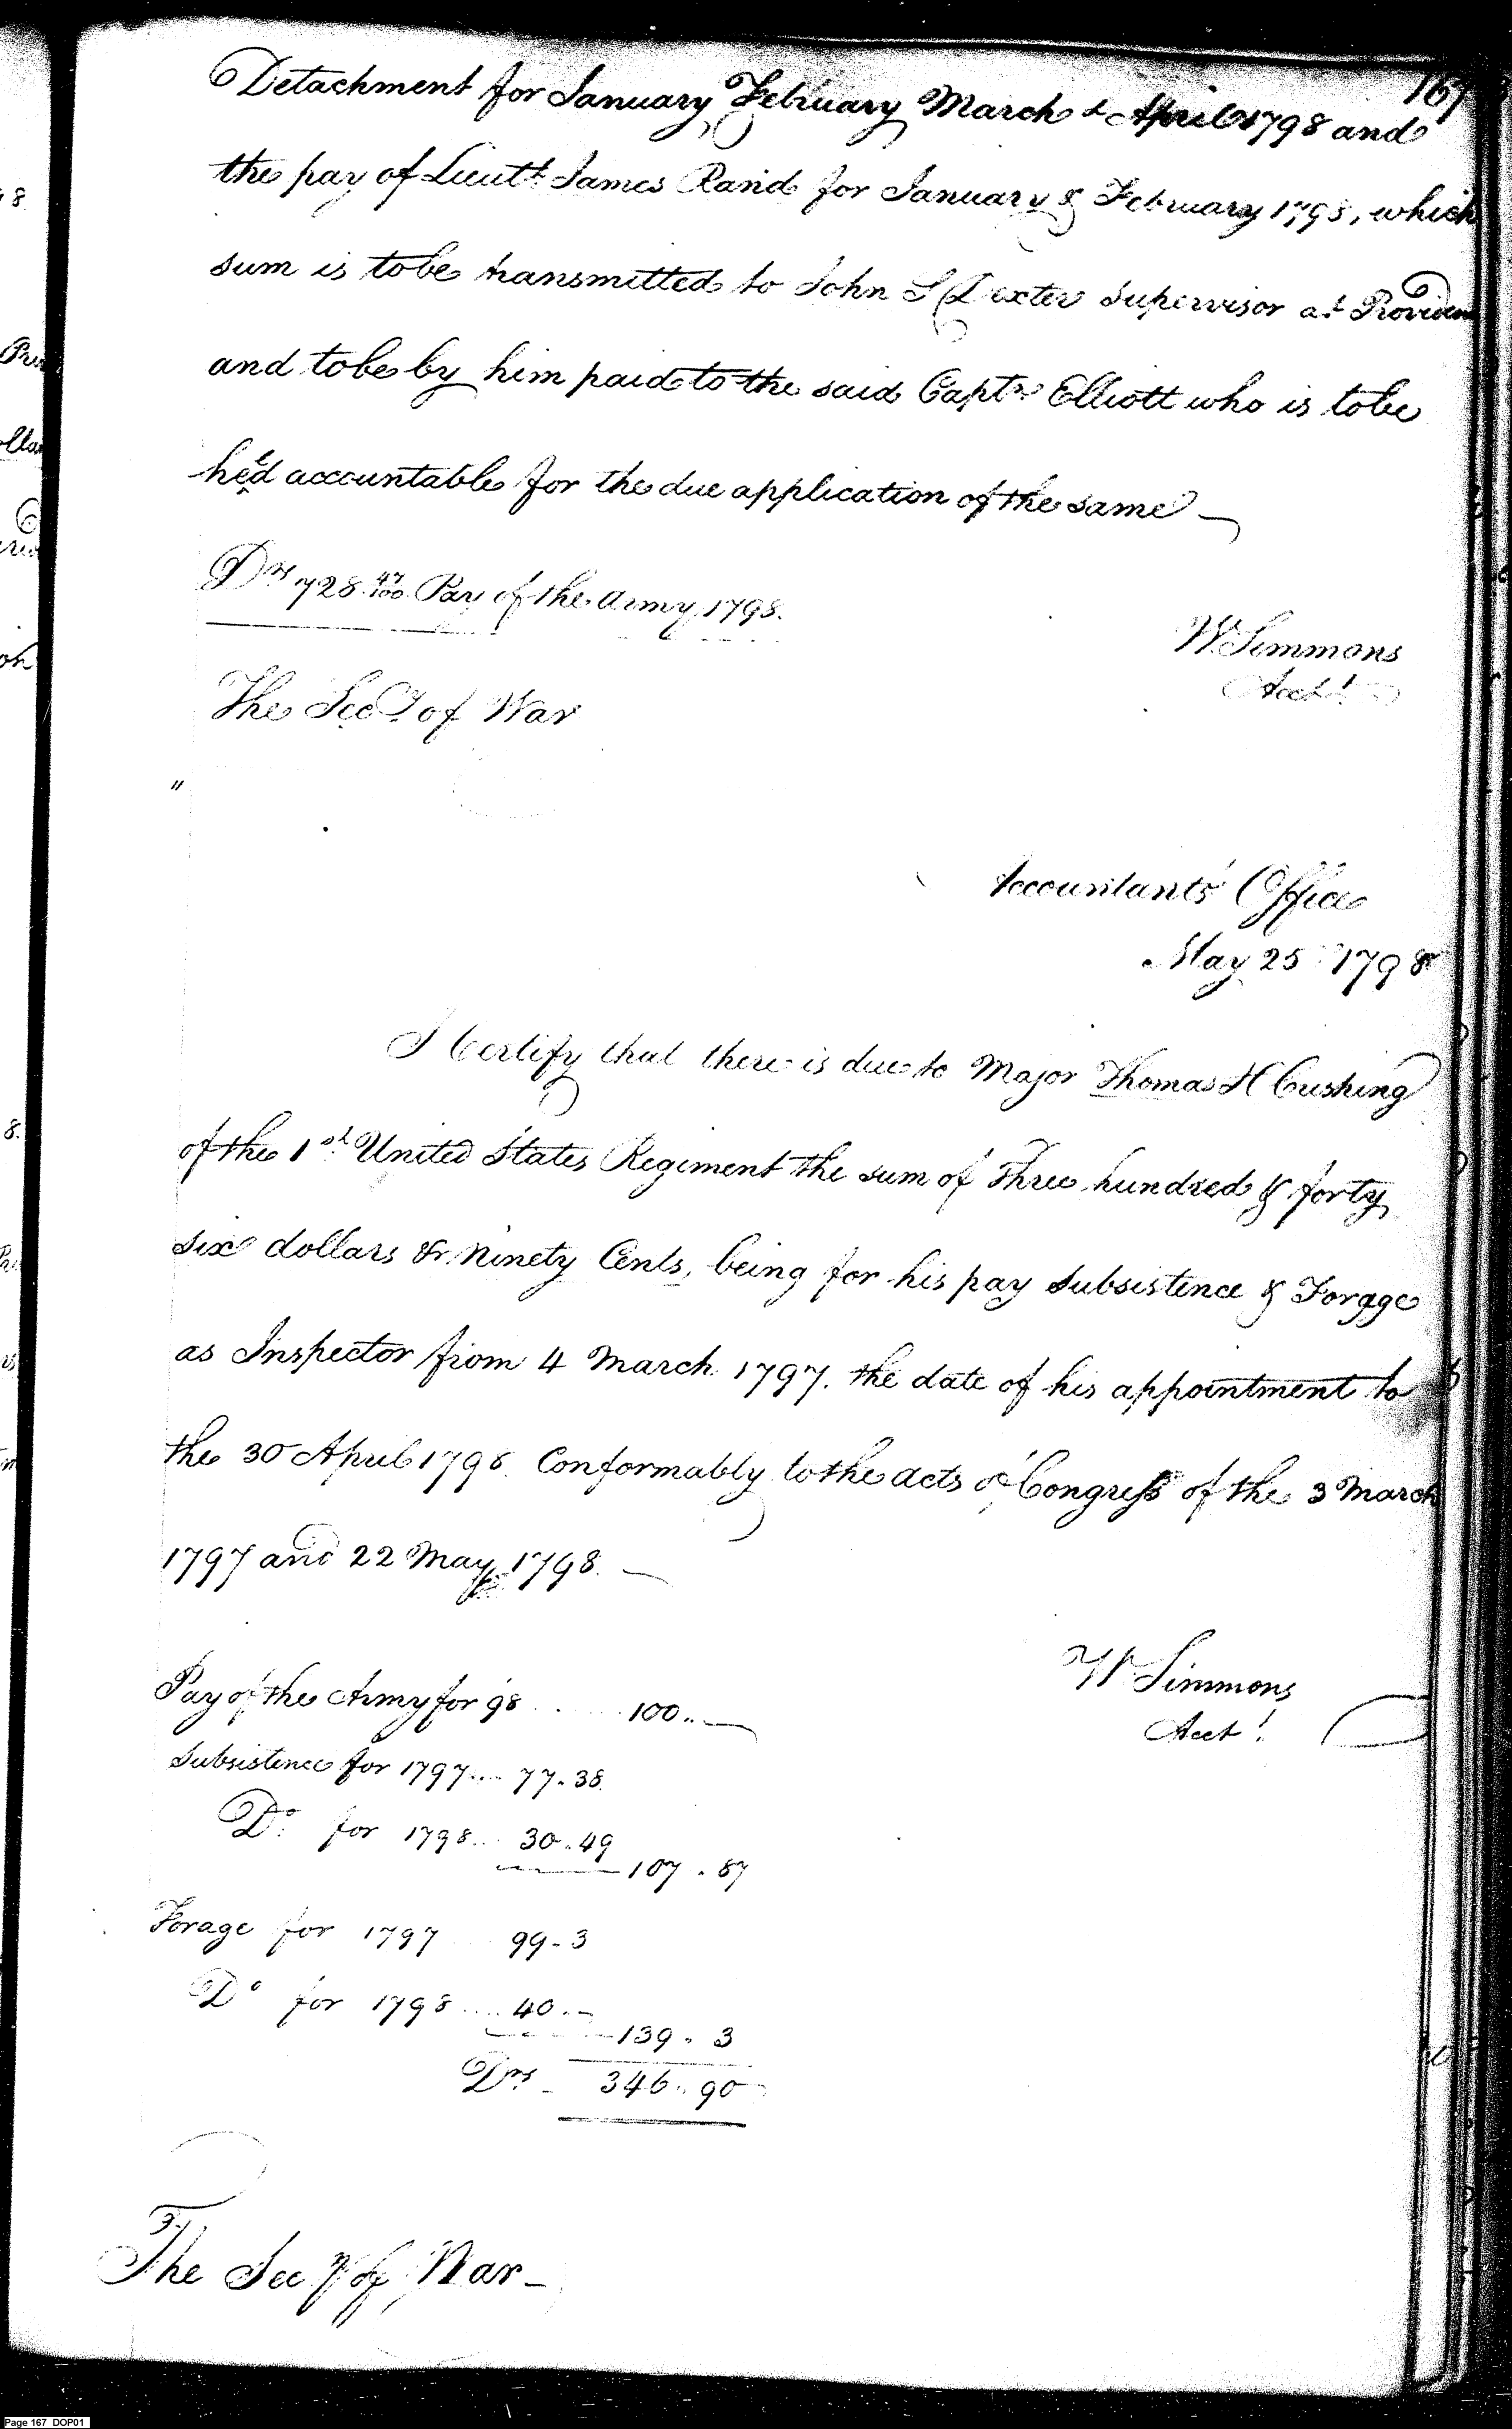 167
Detachment for January February March & April 1798 and
the pay of Lieutt. James Rand for January & February 1798, which
sum is tobe transmitted to John S Dexter Supervisor at Providen
and tobe by him paid to the said Captn. Elliott who is tobe
held accountable for the due application of the same —
Drs 728 47/100 Pay of the army 1798.
W Simmons
Acct.
The Secy. of War
"
Accountants' Office
May 25 1798
I Certify that there is due to Major Thomas H Cushing
of the 1st. United States Regiment the sum of Three hundred & forty
six dollars & ninety Cents, being for his pay Subsistence & Forage
as Inspector from 4 March 1797. the date of his appointment to
the 30 April 1798. Conformably to the acts of Congress of the 3 March
1797 and 22 May 1798. —
W Simmons
Acct.
Pay of the Army for 98 ...... 100.. —
Subsistence for 1797.... 77.38.
Do. for 1798... 30..49
107.87
Forage for 1797 .... 99.3
Do for 1798 .... 40.—
139.3
Drs. 346..90
The Secy of War —
Page 167 DOP01